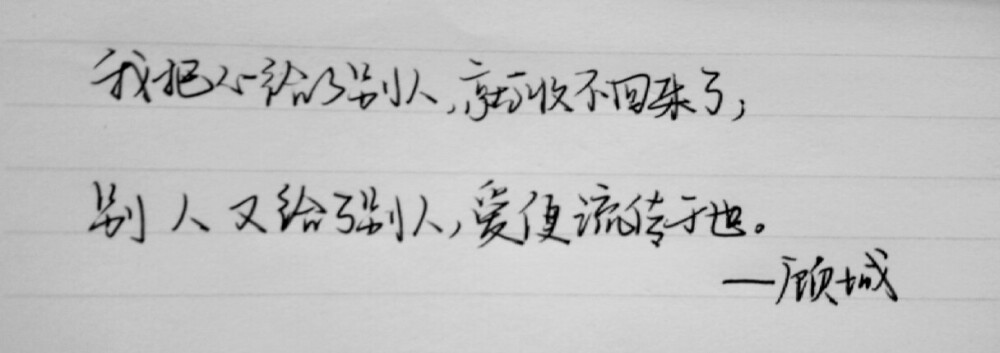 我把心给了别人,就收不回来了,
别人又给了别人,爱便流传于世。
—顾城